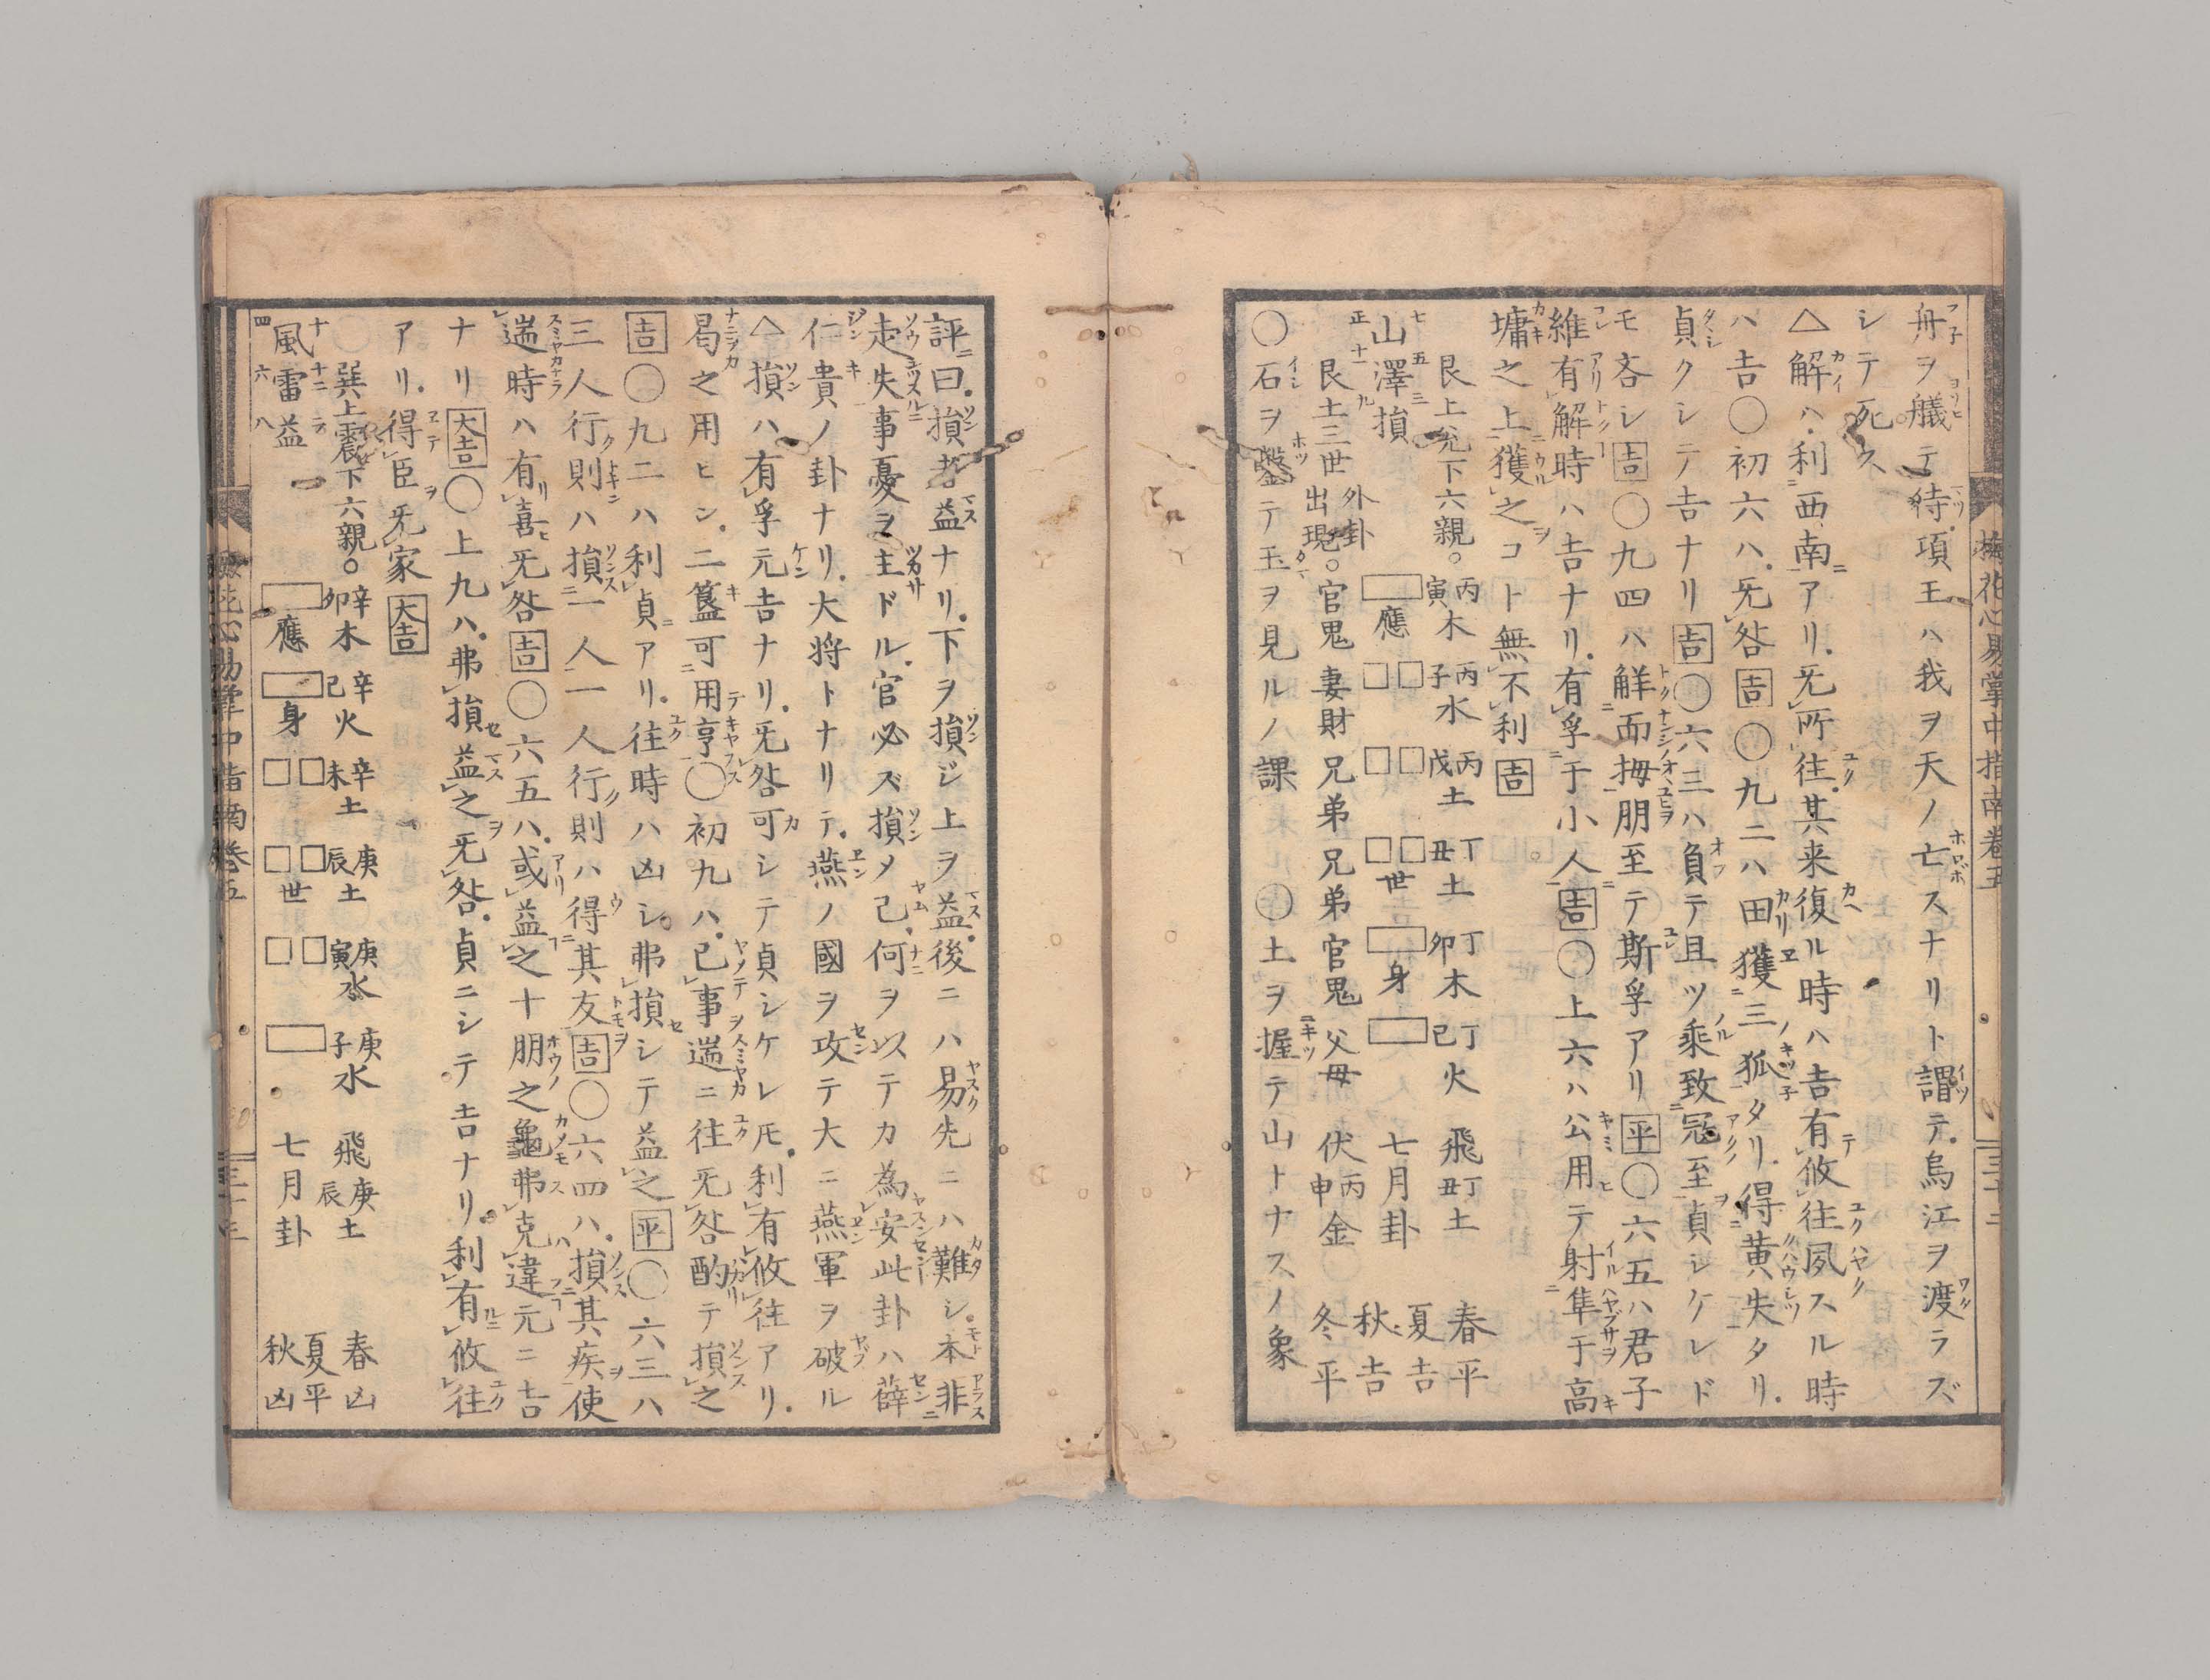 舟ヲ艤テ待項王ハ我ヲ天ノ亡スナリト謂テ烏江ヲ渡ラズ
シテ死ス
△解ハ利西南アリ无所往其来復ル時ハ吉有攸往夙スル時
ハ吉○初六ハ无咎吉○九二ハ田獲三狐タリ得黄失タリ
貞クシテ吉ナリ吉○六三ハ負テ且ツ乘致冦至貞シケレド
モ吝シ吉○九四ハ解而拇朋至テ斯孚アリ平○六五ハ君子
維有解時ハ吉ナリ有孚于小人吉○上六ハ公用テ射隼于高
墉之上獲之コト無不利吉
艮上兌下六親○丙寅木 丙子水 丙戌土 丁丑土 丁卯木 丁巳火 飛丁丑土 春平
山澤損 應 世 身 七月卦 夏吉 秋吉
艮土三世外卦出現○官鬼 妻財 兄弟 兄弟 官鬼 父母 伏丙申金 冬平
○石ヲ鑿テ玉ヲ見ルノ課 ○土ヲ握テ山トナスノ象
梅花心易掌中指南卷五 三十二
評曰損者益ナリ下ヲ損ジ上ヲ益後ニハ易先ニハ難シ本非
走失事憂ヲ主ドル官必ズ損メ已何ヲ以テカ為安此卦ハ薛
仁貴ノ卦ナリ大将トナリテ燕ノ國ヲ攻テ大ニ燕軍ヲ破ル
△損ハ有孚元吉ナリ无咎可シテ貞シケレ𪜈利有攸往アリ
曷之用ヒン二簋可用亨○初九ハ已事遄ニ往无咎酌テ損之
吉○九二ハ利貞アリ往時ハ凶シ弗損シテ益之平○六三ハ
三人行則ハ損一人一人行則ハ得其友吉○六四ハ損其疾使
遄時ハ有喜无咎吉○六五ハ或益之十朋之龜弗克違元ニ吉
ナリ大吉○上九ハ弗損益之无咎貞ニシテ吉ナリ利有攸往
アリ得臣无家大吉
○巽上震下六親○辛卯木 辛巳火 辛未土 庚辰土 庚寅水 庚子水 飛庚辰土 春凶
風雷益 應 身 世 七月卦 夏平 秋凶
梅花心易掌中指南卷五